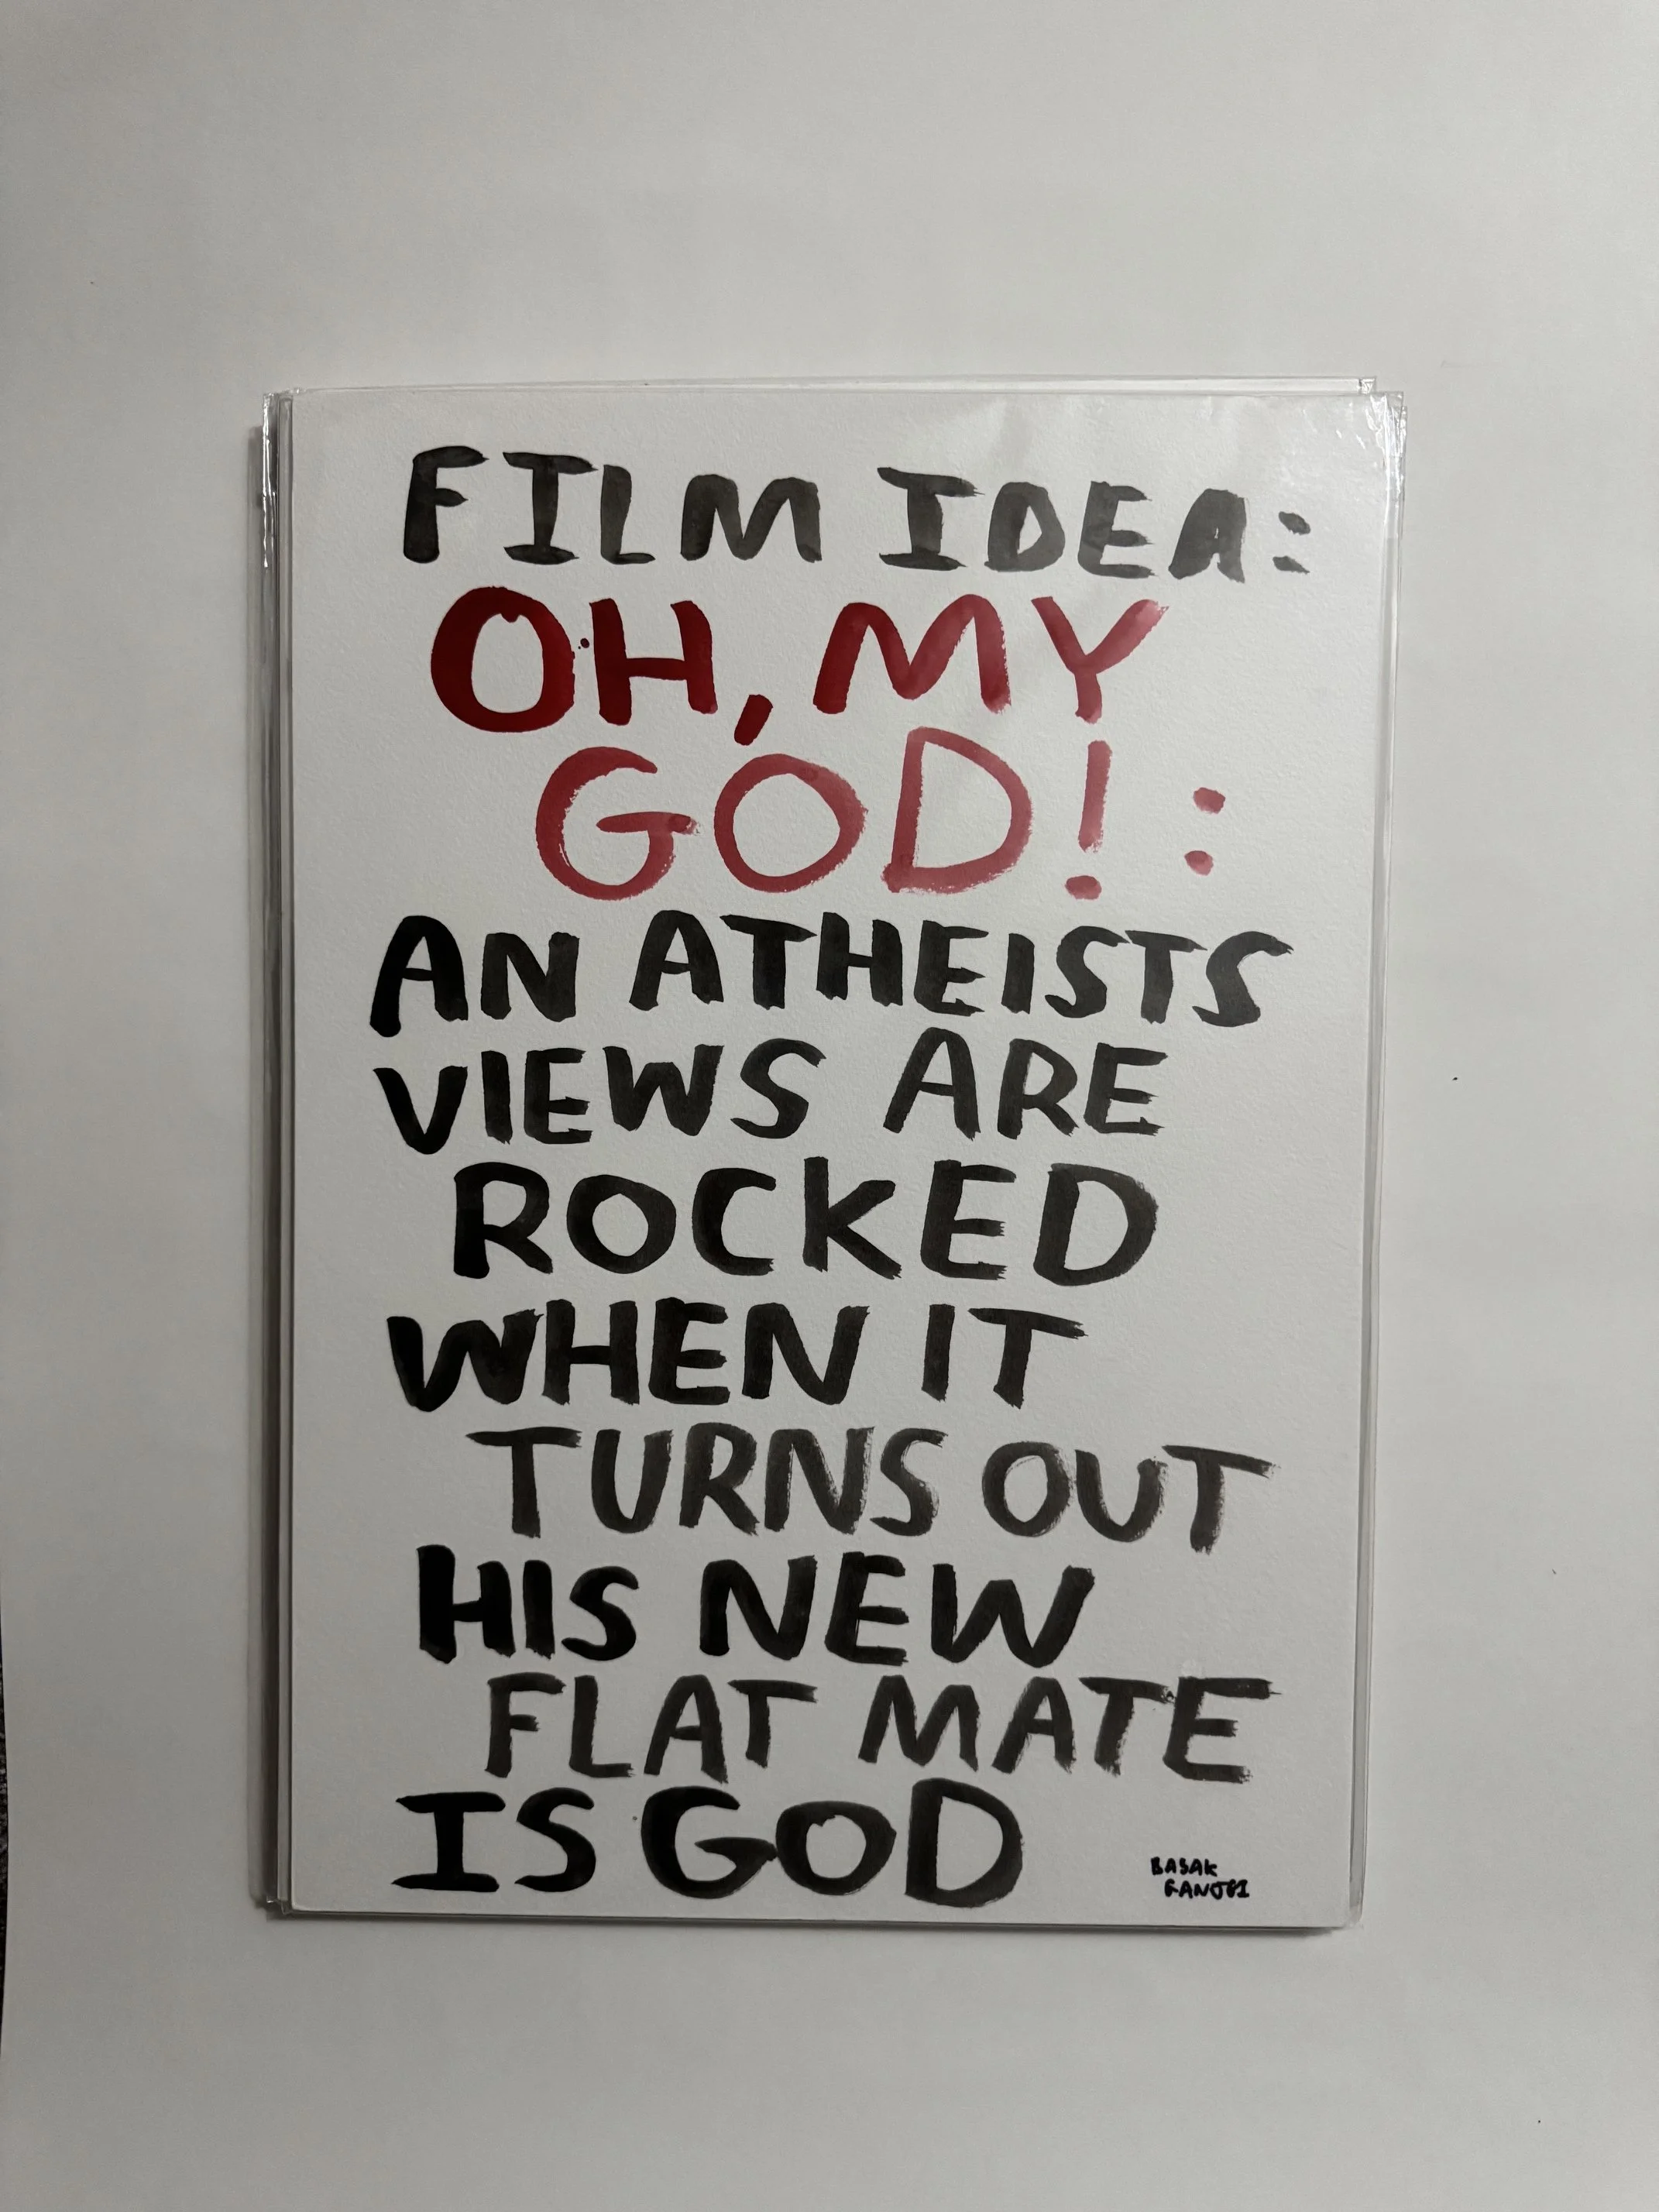 FILM IDEA:
OH, MY
GOD!:
AN ATHEISTS
VIEWS ARE
ROCKED
WHEN IT
TURNS OUT
HIS NEW
FLAT MATE
IS GOD
BASAK